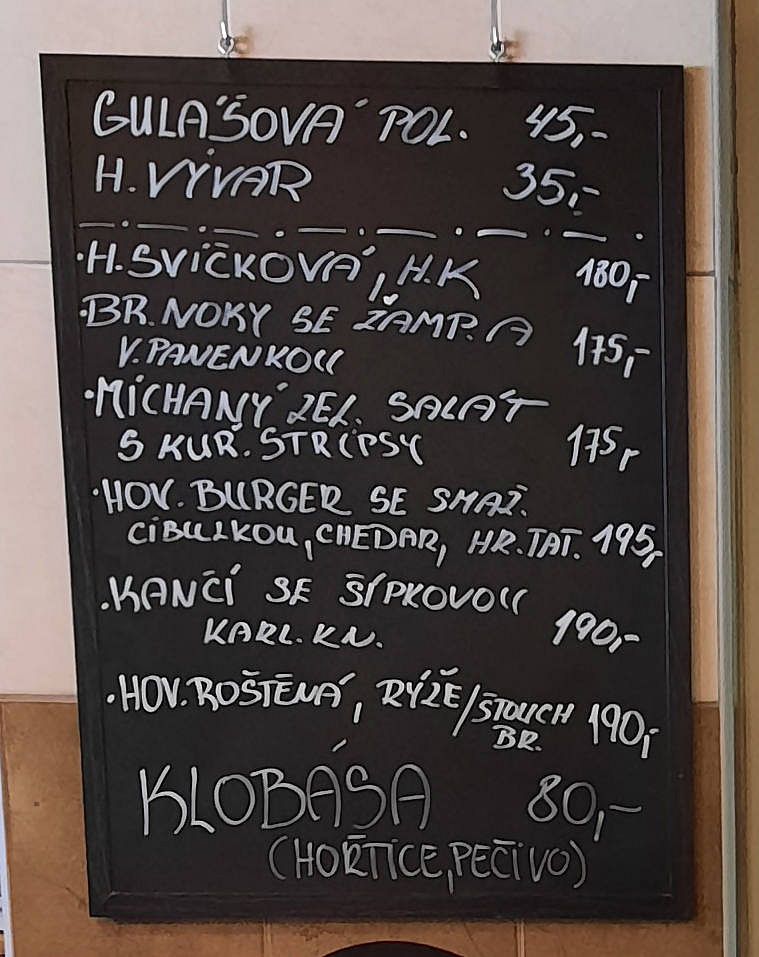 GULÁŠOVÁ POL. 45,-
H. VÝVAR 35,-
·H. SVÍČKOVÁ, H.K 180,-
·BR. NOKY SE ŽAMP. A 175,-
V. PANENKOU
·MÍCHANÝ ZEL. SALÁT
S KUŘ. STRIPSY 175,-
·HOV. BURGER SE SMAŽ.
CIBULKOU, CHEDAR, HR. TAT. 195,-
·KANČÍ SE ŠÍPKOVOU
KARL. KN. 190,-
·HOV. ROŠTĚNÁ, RÝŽE/ŠTOUCH 190,-
BR.
KLOBÁSA 80,-
(HOŘTICE, PEČIVO)